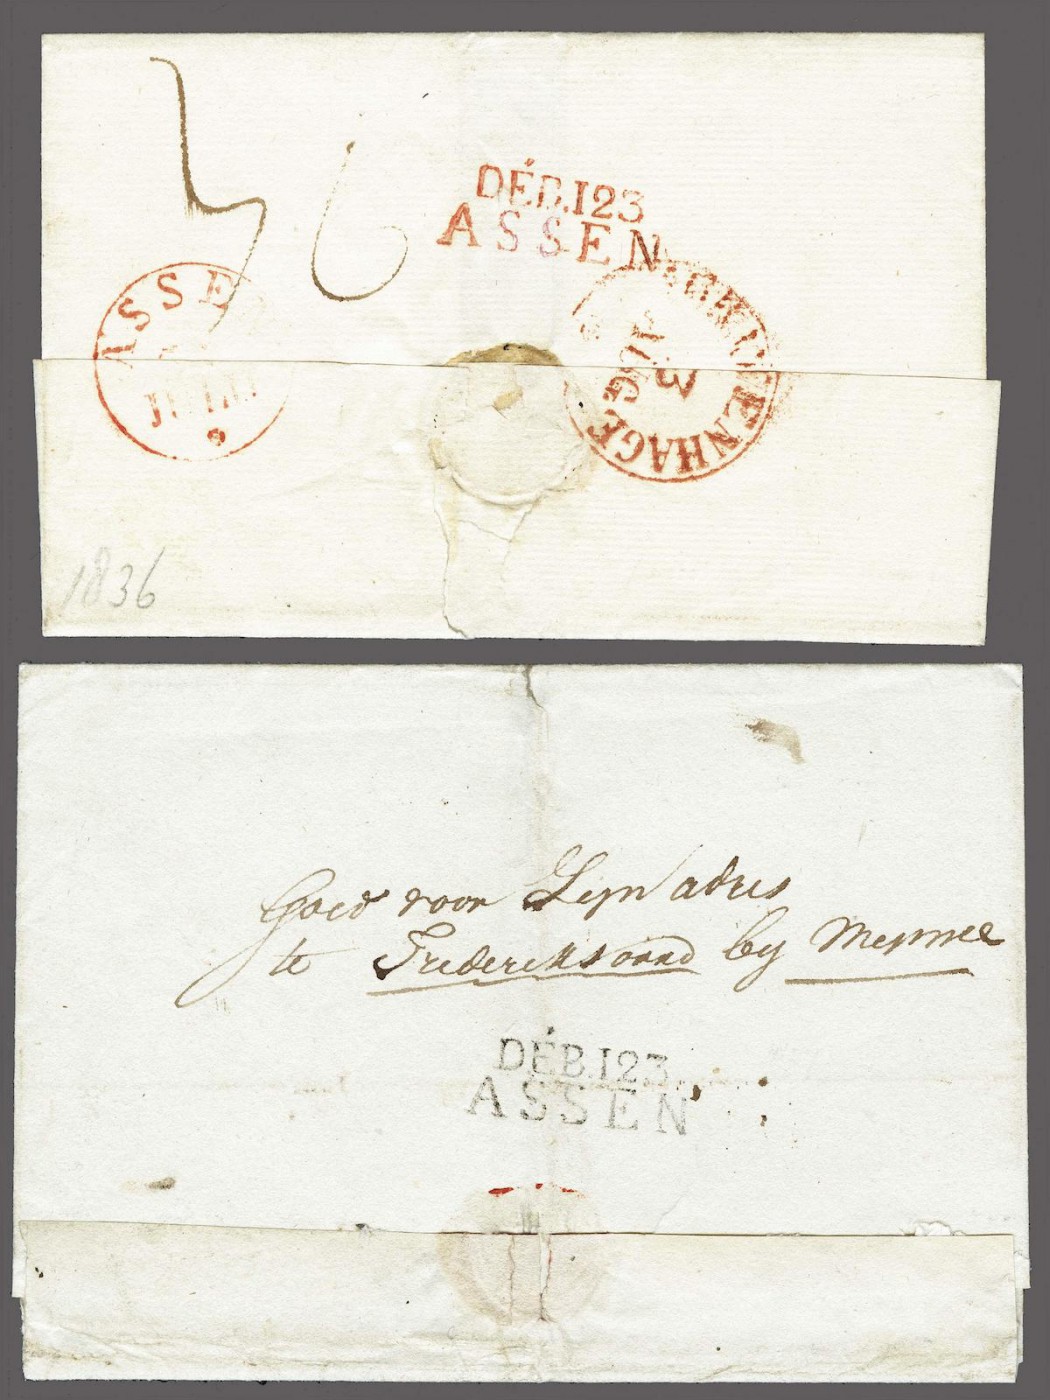 DÉB.123
ASSEN
ASSE
3
AUG
'SGRAVENHAGE
1836
Goed voor Zijn adres
te Frederiksoord by Meppel
DÉB.123
ASSEN